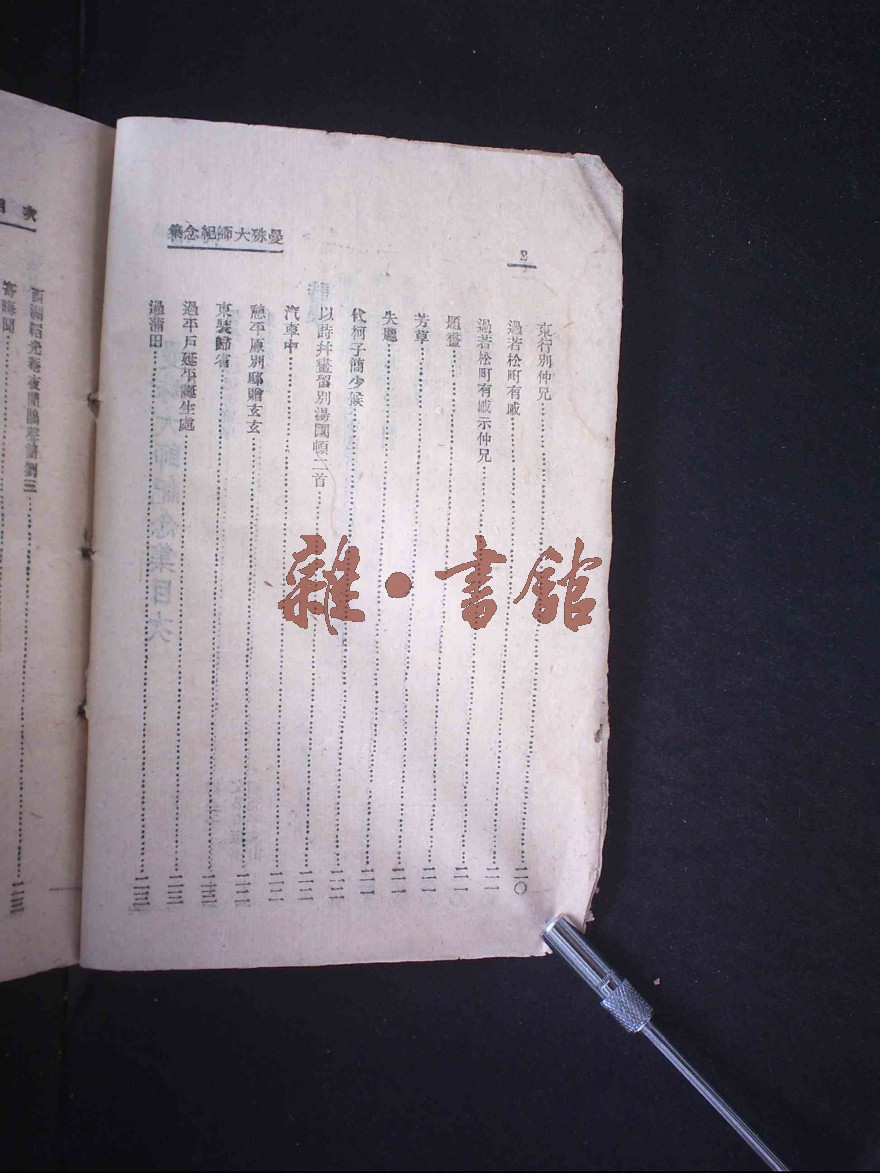 曼殊大師紀念集
2
東行別仲兄……二〇
過若松町有感……二一
過若松町有感示仲兄……二一
題畫……二一
芳草……二一
失題……二一
代柯子簡少候……二二
以詩幷畫留別湯國頓二首……二二
汽車中……二二
憩平原別邸贈玄玄……二二
束裝歸省……二三
過平戶延平誕生處……二三
過蒲田……二三
目次
西湖韜光菴夜聞鵑聲簡劉三……二三
寄晦聞……
雜·書館